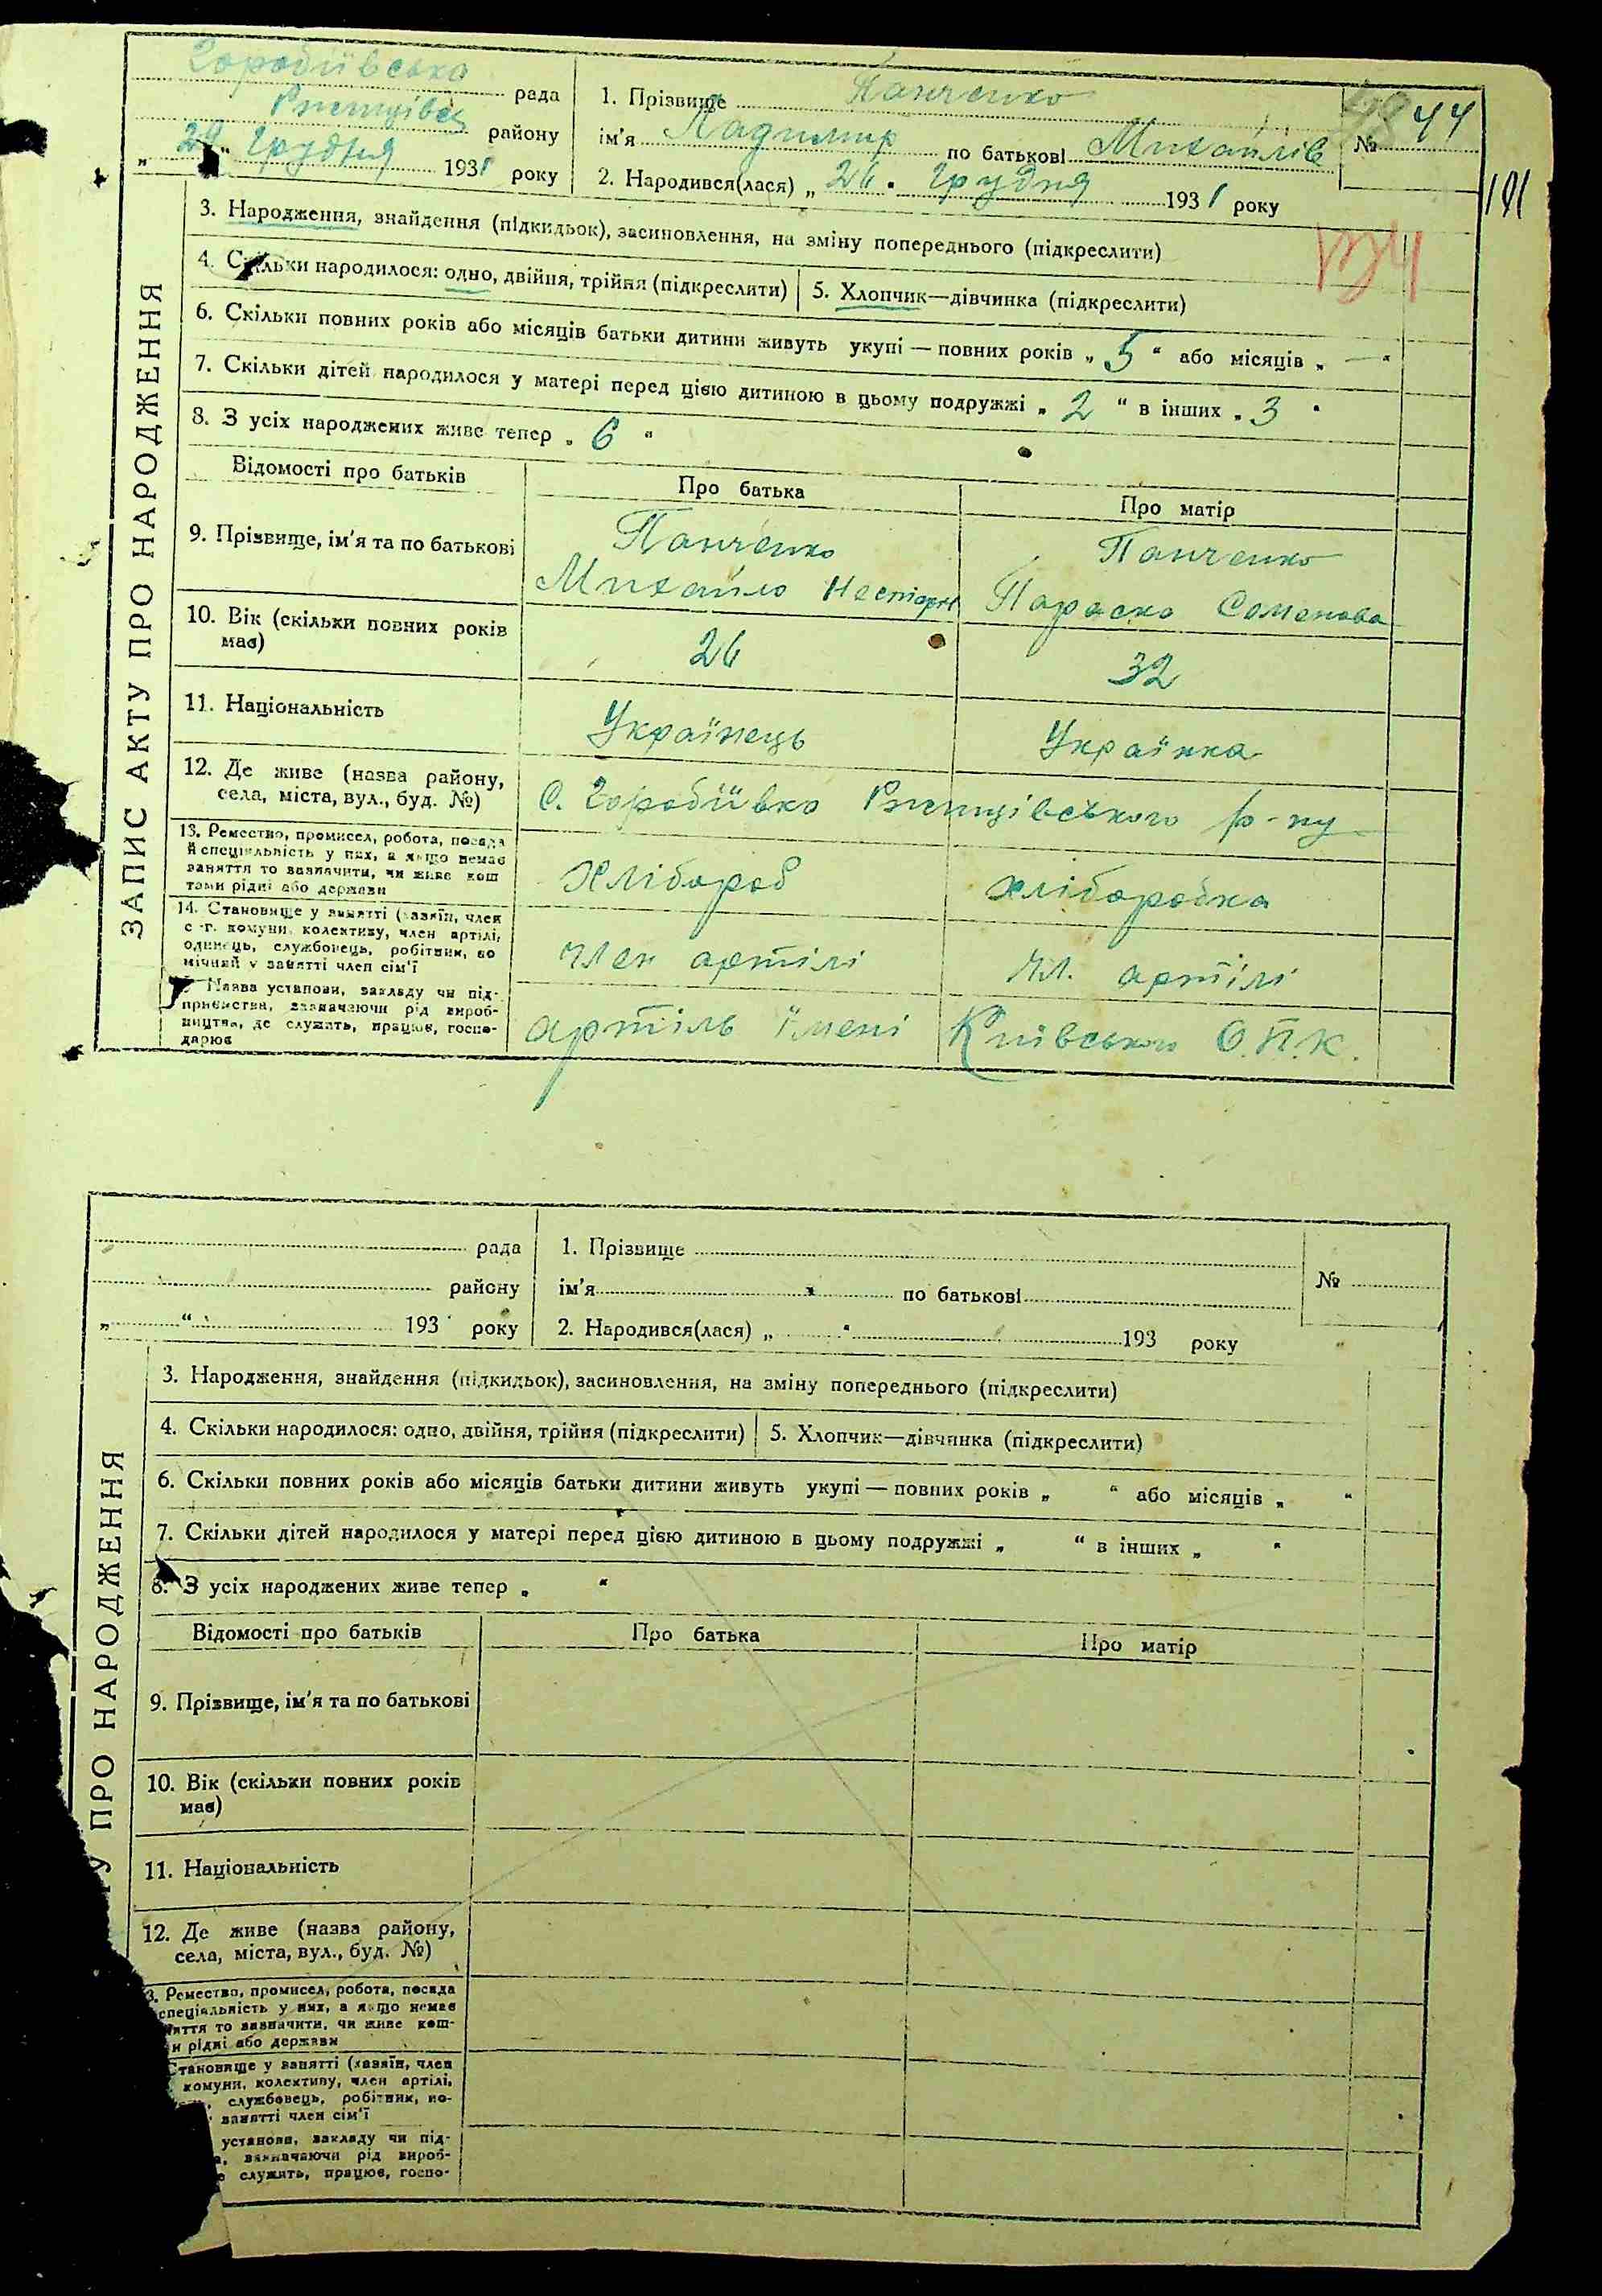 Горобіївська рада
Ржищівськ району
"29" Грудня 1931 року
1. Прізвище Панченко
ім'я Ладимир по батькові Михайлів
2. Народився(лася) „26" Грудня 1931 року
№ 44
191
ЗАПИС АКТУ ПРО НАРОДЖЕННЯ
3. Народження, знайдення (підкидьок), засиновлення, на зміну попереднього (підкреслити)
4. Скільки народилося: одно, двійня, трійня (підкреслити) 5. Хлопчик—дівчинка (підкреслити)
6. Скільки повних років або місяців батьки дитини живуть укупі — повних років „5" або місяців „—"
7. Скільки дітей народилося у матері перед цією дитиною в цьому подружжі „2" в інших „3"
8. З усіх народжених живе тепер „6"
Відомості про батьків Про батька Про матір
9. Прізвище, ім'я та по батькові Панченко Панченко
Михайло Несторів Параска Семенова
10. Вік (скільки повних років має) 26 32
11. Національність Українець Українка
12. Де живе (назва району,
села, міста, вул., буд. №) С. Горобіївка Ржищівського р-ну
13. Ремество, промисел, робота, посада
й спеціяльність у них, а якщо немає
заняття то зазначити, чи живе кош
тами рідні або держави
Хлібороб хліборобка
14. Становище у занятті (хазяїн, член
с.-г. комуни, колективу, член артілі,
одинець, службовець, робітник, по
мічний у занятті член сім'ї
член артілі чл. артілі
Назва установи, закладу чи під-
приємства, зазначаючи рід вироб-
ництва, де служить, працює, госпо-
дарює
артіль імені Київського О.П.К.
рада
району
„ " 193 року
1. Прізвище
ім'я по батькові
2. Народився(лася) „ " 193 року
№
У ПРО НАРОДЖЕННЯ
3. Народження, знайдення (підкидьок), засиновлення, на зміну попереднього (підкреслити)
4. Скільки народилося: одно, двійня, трійня (підкреслити) 5. Хлопчик—дівчинка (підкреслити)
6. Скільки повних років або місяців батьки дитини живуть укупі — повних років „ " або місяців „ "
7. Скільки дітей народилося у матері перед цією дитиною в цьому подружжі „ " в інших „ "
8. З усіх народжених живе тепер „ "
Відомості про батьків Про батька Про матір
9. Прізвище, ім'я та по батькові
10. Вік (скільки повних років
має)
11. Національність
12. Де живе (назва району,
села, міста, вул., буд. №)
3. Ремество, промисел, робота, посада
спеціяльність у них, а якщо немає
няття то зазначити, чи живе кош-
и рідні або держави
Становище у занятті (хазяїн, член
комуни, колективу, член артілі,
службовець, робітник, по-
занятті член сім'ї
установи, закладу чи під-
а, зазначаючи рід вироб-
е служить, працює, госпо-